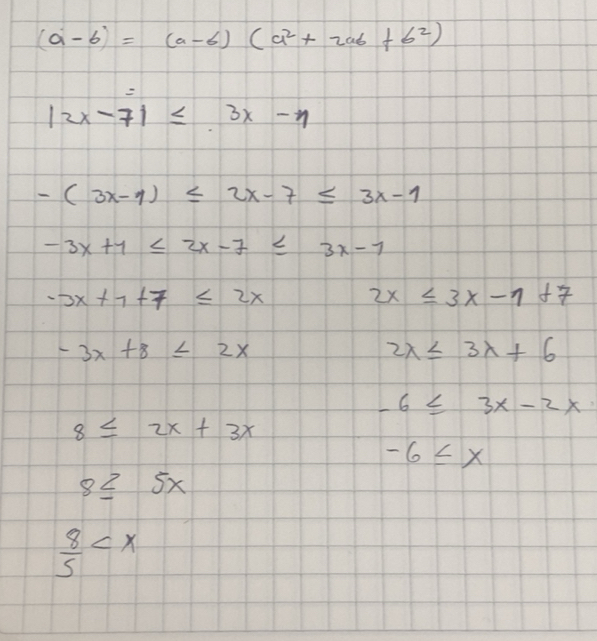 (a-b) = (a-b) (a² + 2ab + b²)
=
|2x-7| ≤ 3x - 1
-(3x-1) ≤ 2x-7 ≤ 3x-1
-3x+1 ≤ 2x-7 ≤ 3x-1
-3x+1+7 ≤ 2x 2x ≤ 3x-1+7
-3x+8 ≤ 2x 2x ≤ 3x+6
-6 ≤ 3x-2x
8 ≤ 2x+3x
-6 ≤ x
8 ≤ 5x
8/5 < x